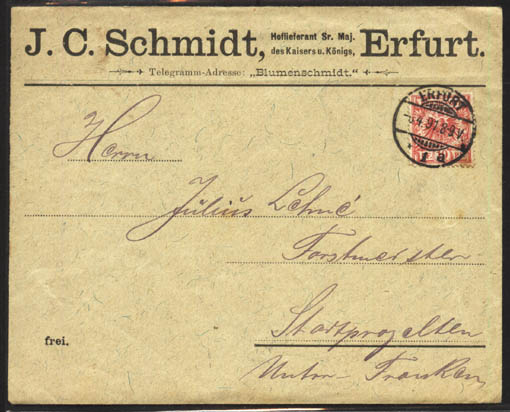 J. C. Schmidt, Hoflieferant Sr. Maj. des Kaisers u. Königs, Erfurt.
Telegramm-Adresse: „Blumenschmidt."
ERFURT
4.97.8-9V.
1 a
Herrn
Julius
Forstmeister
Stadtprozelten
Unter-Franken
frei.